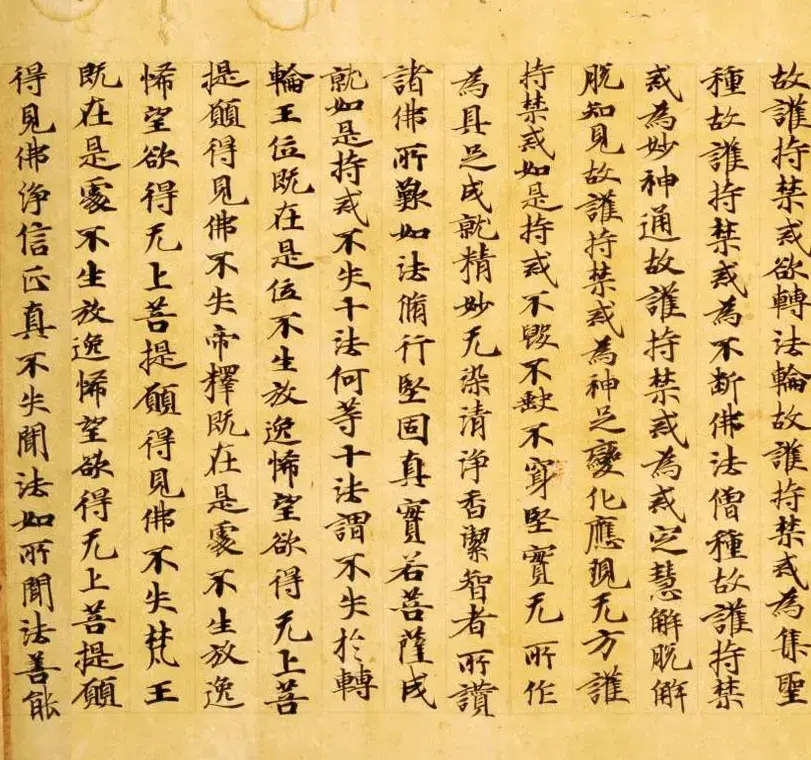 故護持禁戒欲轉法輪故護持禁戒為集聖
種故護持禁戒為不斷佛法僧種故護持禁
戒為妙神通故護持禁戒為戒定慧解脫解
脫知見故護持禁戒為神足變化應現无方護
持禁戒如是持戒不毀不缺不穿堅實无所作
為具足成就精妙无染清淨香潔智者所讚
諸佛所歎如法脩行堅固真實若菩薩成
就如是持戒不失十法何等十法謂不失於轉
輪王位既在是位不生放逸悕望欲得无上菩
提願得見佛不失帝釋既在是處不生放逸
悕望欲得无上菩提願得見佛不失梵王
既在是處不生放逸悕望欲得无上菩提願
得見佛淨信正真不失聞法如所聞法善能